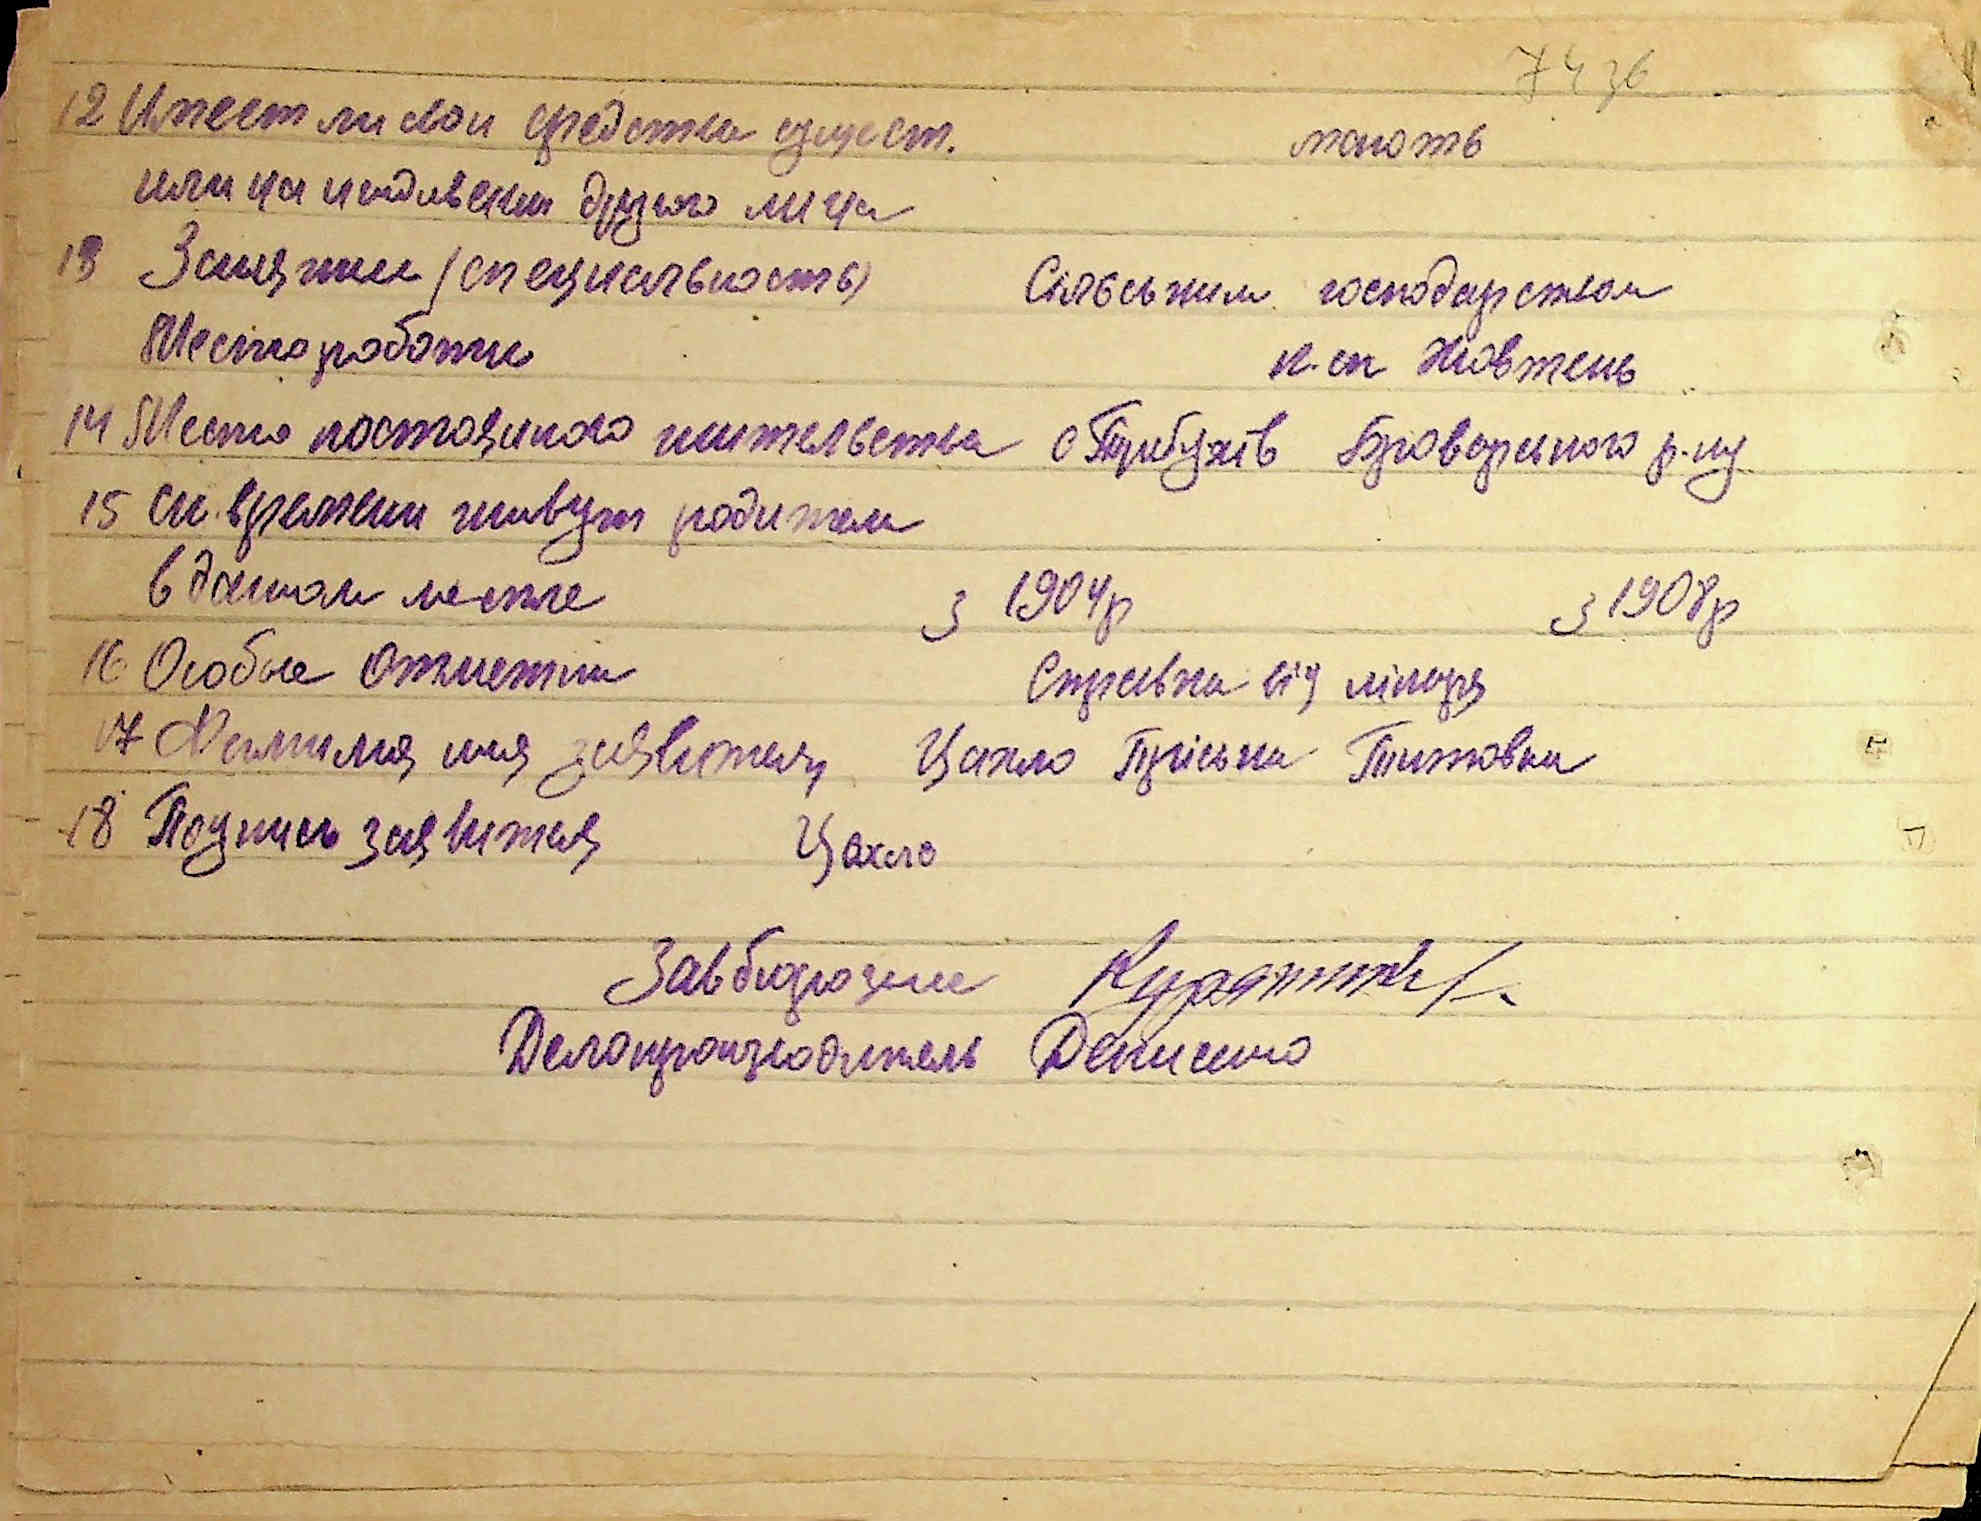 74 зв
12 Имеет ли свои средства сущест. мають
или на иждивении другого лица
13 Занятие (специальность) Сільським господарством
Место работы к-сп Жовтень
14 Место постоянного жительства с Требухів Броварського р-ну
15 Ск. времени живут родители
в данном месте з 1904р з 1908р
16 Особые отметки Справка від лікаря
17 Фамилия имя заявителя Цахло Пріська Титовна
18 Подпись заявителя Цахло
Завбюро
Делопроизводитель Денисенко